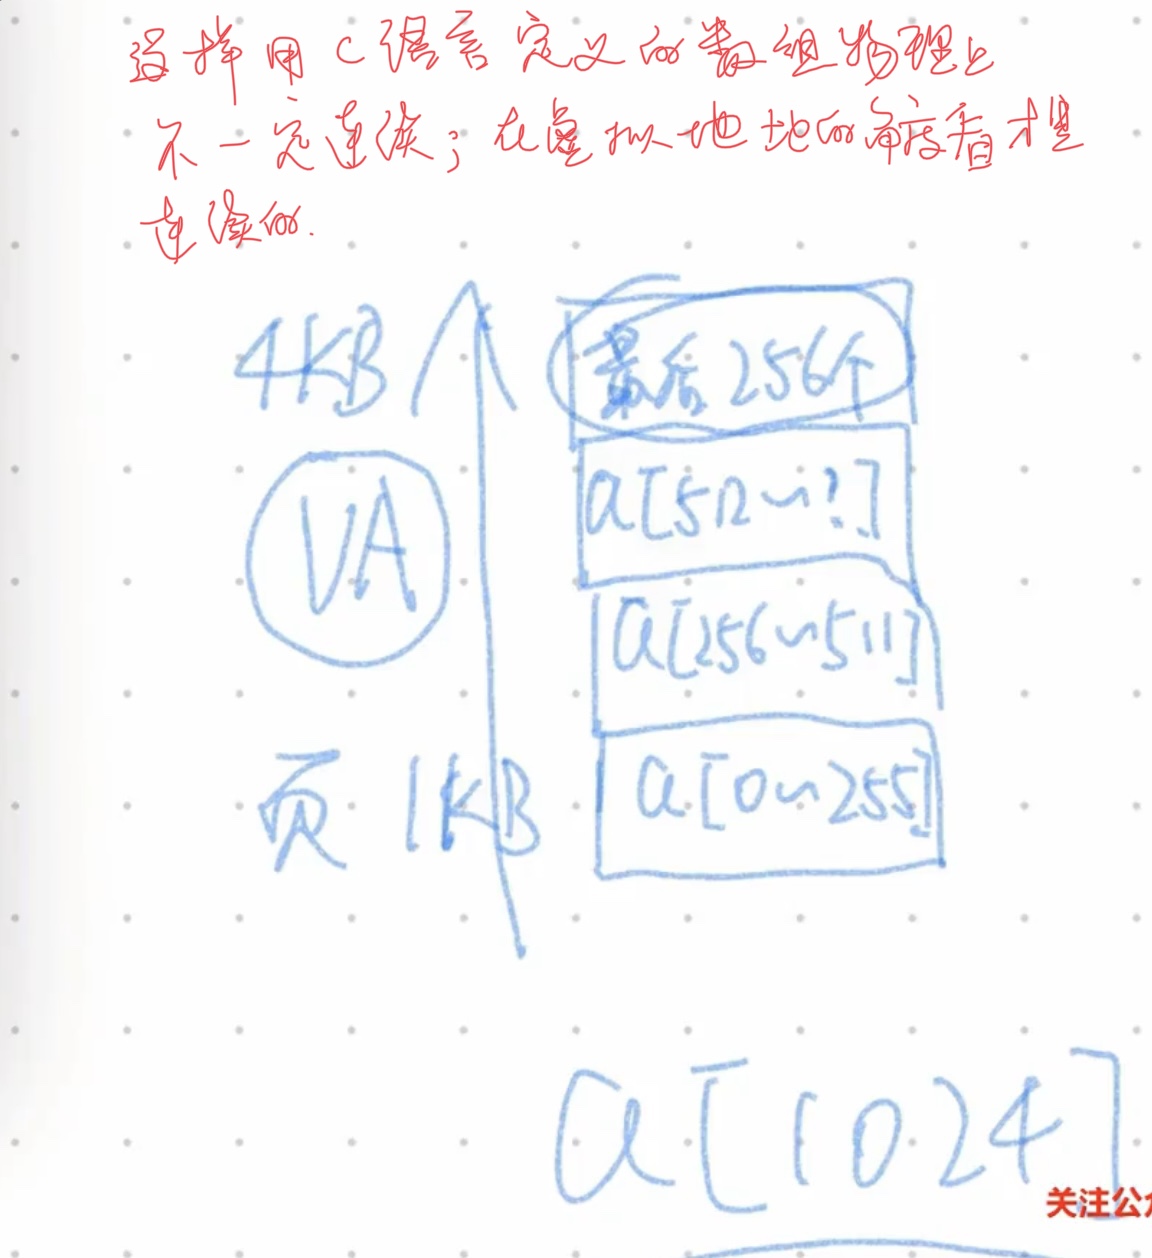 这样用C语言定义的数组物理上
不一定连续；在虚拟地址的角度看才是
连续的.
4KB
最后256个
VA
a[512~?]
a[256~511]
页 1KB
a[0~255]
a[1024]
关注公众